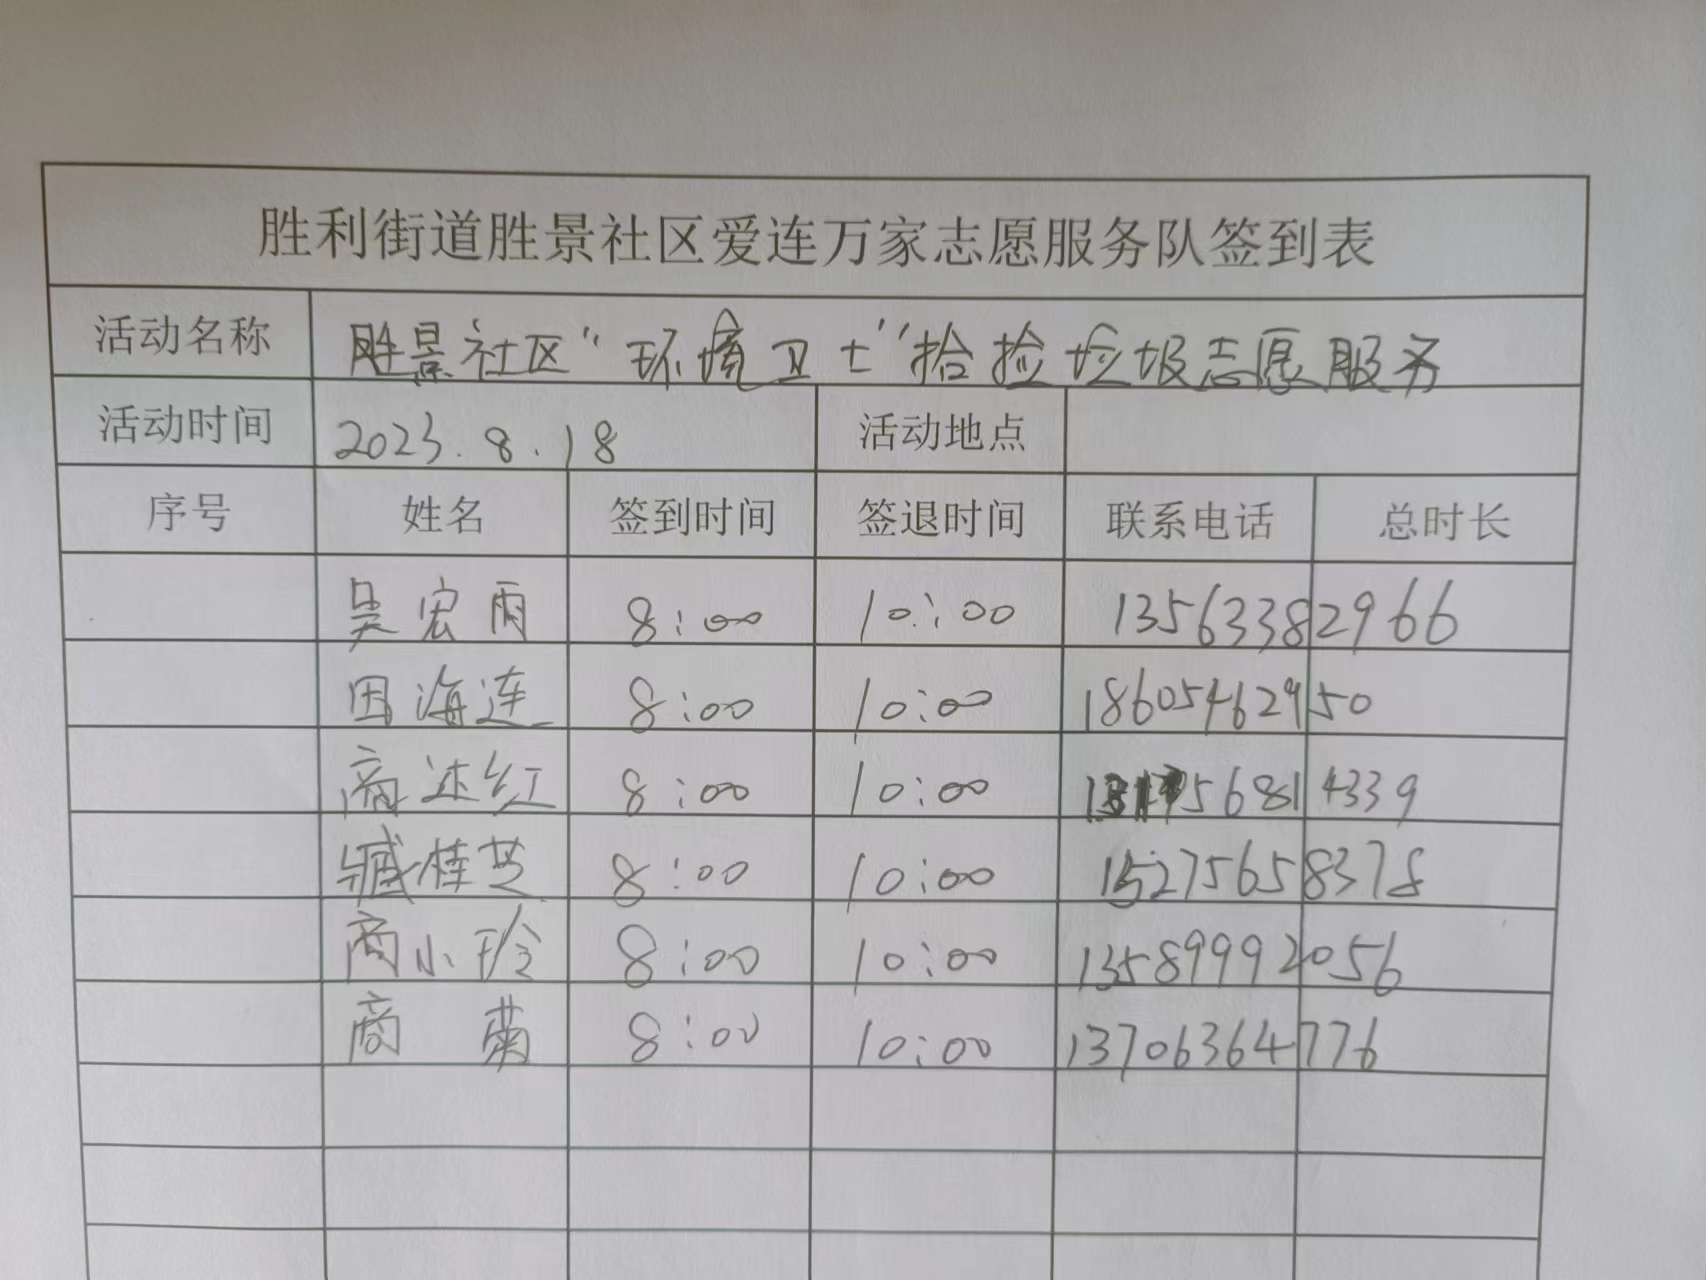 胜利街道胜景社区爱连万家志愿服务队签到表
活动名称 胜景社区“环境卫士”拾捡垃圾志愿服务
活动时间 2023.8.18 活动地点
序号 姓名 签到时间 签退时间 联系电话 总时长
吴宏雨 8:00 10:00 13563382966
田海连 8:00 10:00 18605462950
商述红 8:00 10:00 56814339
臧桂芝 8:00 10:00 15275658378
商小玲 8:00 10:00 13589992056
商菊 8:00 10:00 13706364776